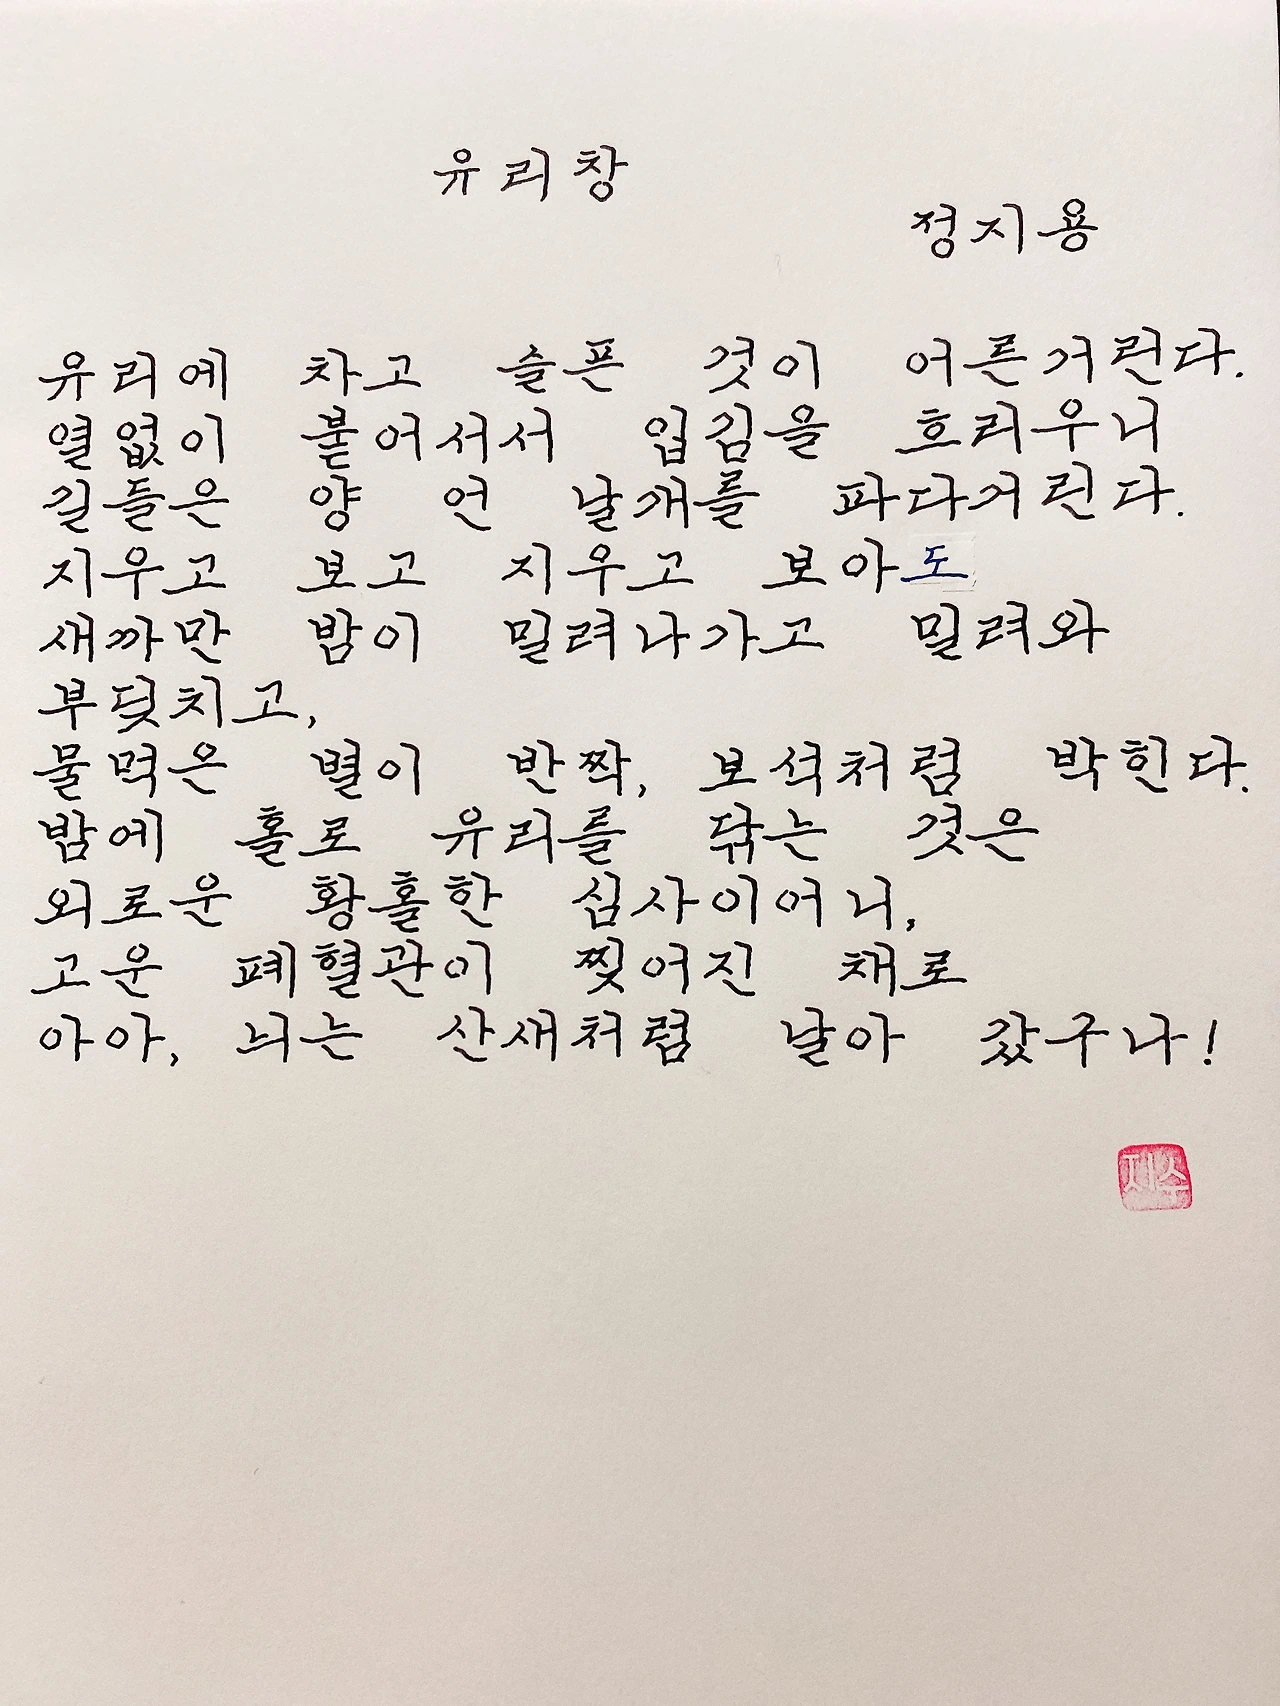 유리창
정지용
유리에 차고 슬픈 것이 어른거린다.
열없이 붙어서서 입김을 흐리우니
길들은 양 언 날개를 파다거린다.
지우고 보고 지우고 보아도
새까만 밤이 밀려나가고 밀려와
부딪치고,
물먹은 별이 반짝, 보석처럼 박힌다.
밤에 홀로 유리를 닦는 것은
외로운 황홀한 심사이어니,
고운 폐혈관이 찢어진 채로
아아, 늬는 산새처럼 날아 갔구나!
지수